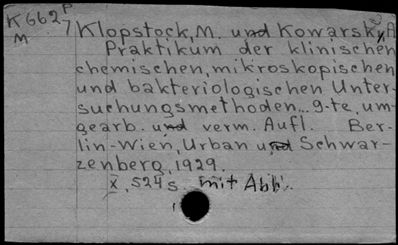 K 662 P
M 7 Klopstock, M. und Kowarsky, A
Praktikum der klinischen
chemischen, mikroskopischen
und bakteriologischen Unter-
suchungsmethoden... 9-te, um-
gearb. und verm. Aufl. Ber-
lin-Wien, Urban und Schwar-
zenberg, 1929.
X, 524 s. mit Abb.